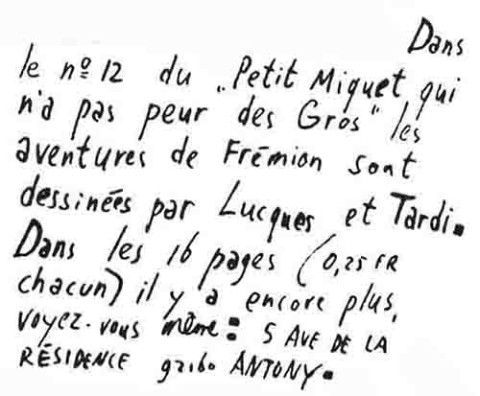 Dans
le nº 12 du „Petit Miquet qui
n'a pas peur des Gros" les
aventures de Frémion sont
dessinées par Lucques et Tardi.
Dans les 16 pages (0,25 FR
chacun) il y a encore plus,
voyez-vous même: 5 AVE DE LA
RÉSIDENCE 92160 ANTONY.